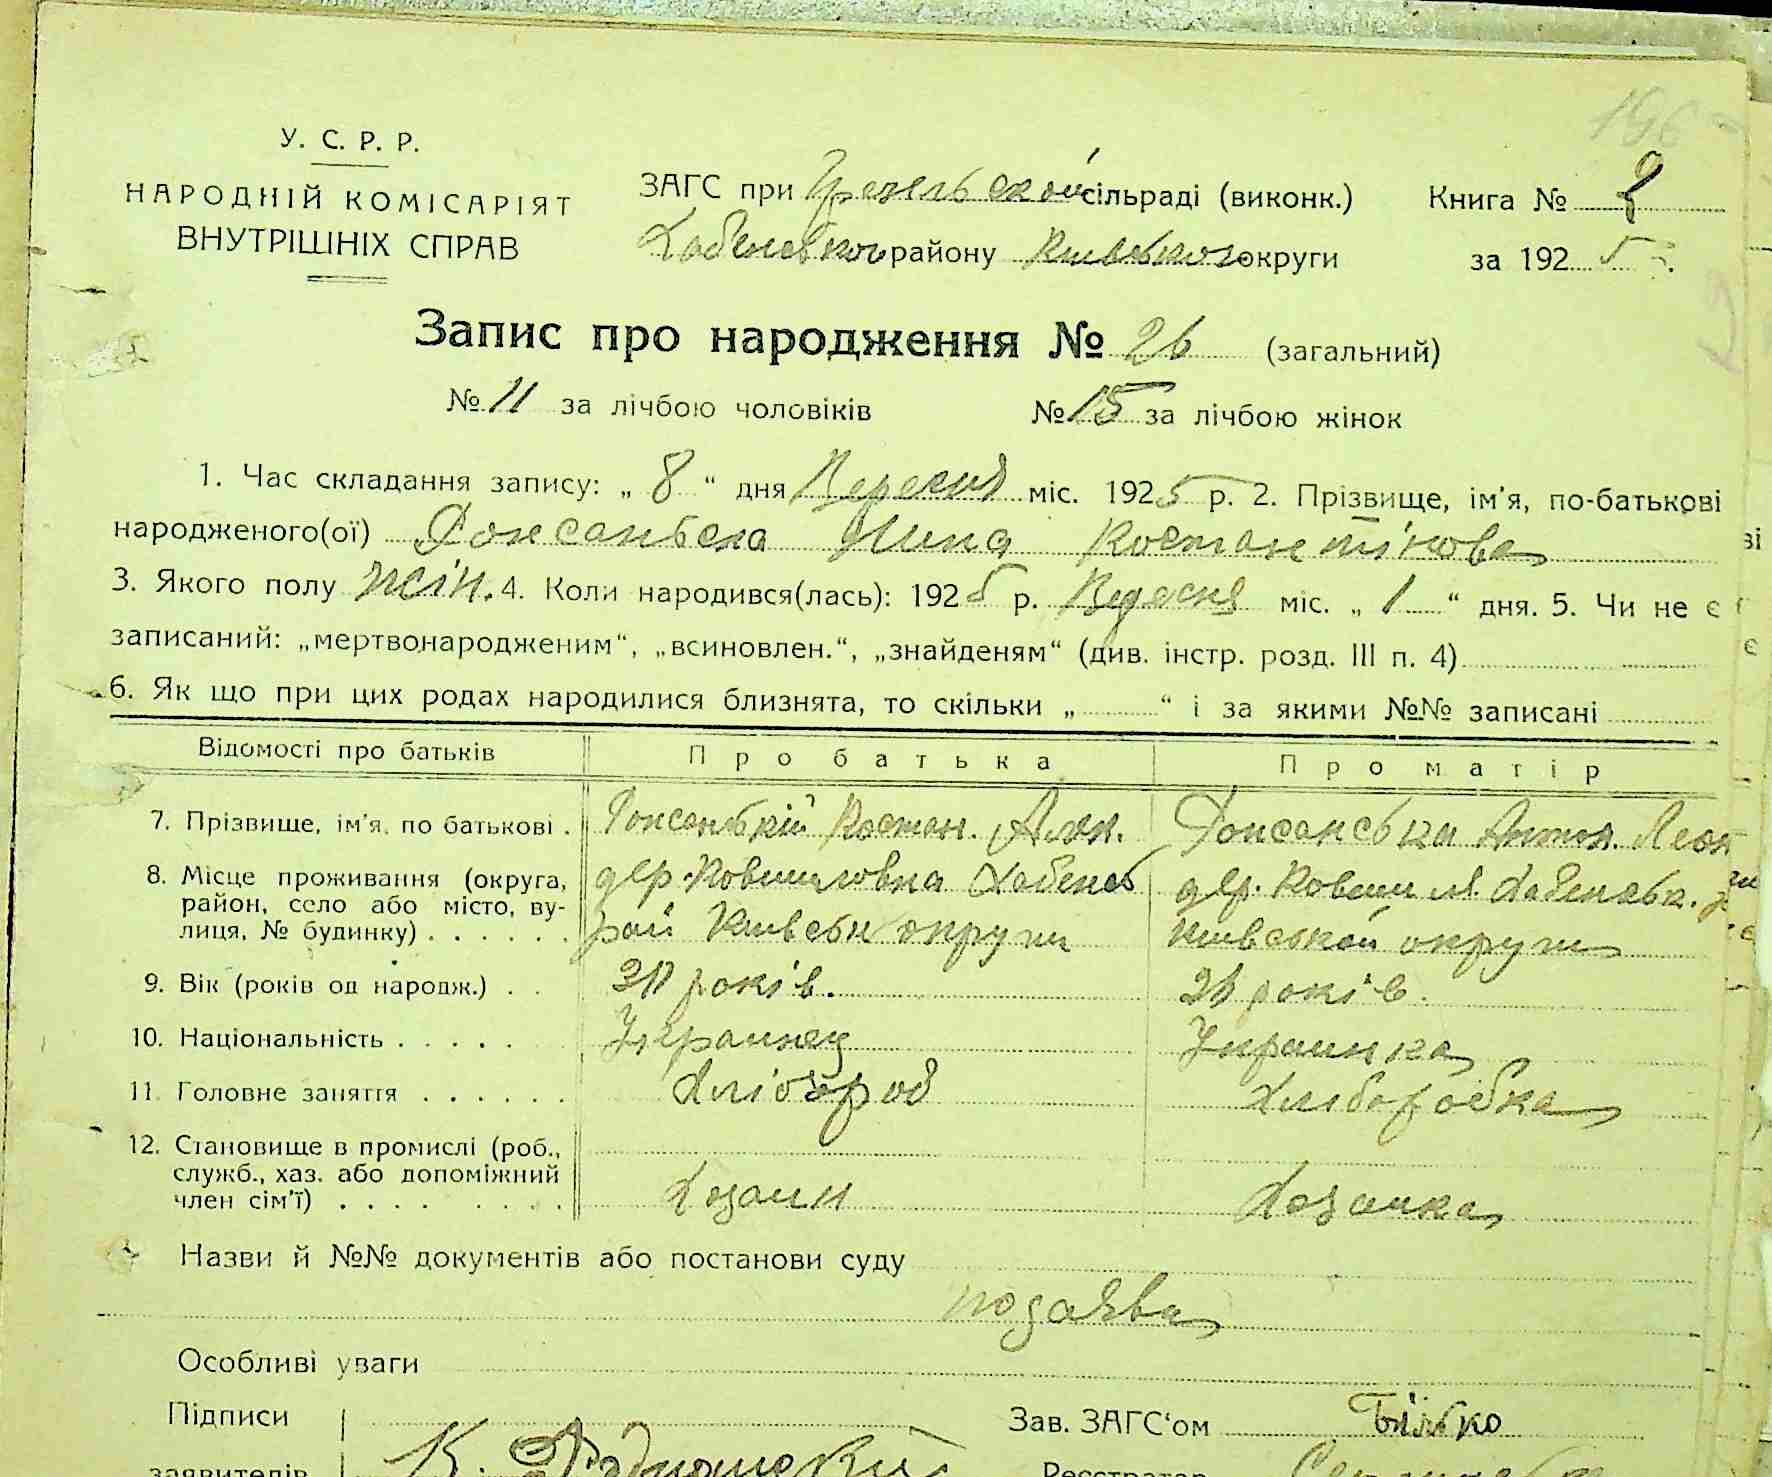 У. С. Р. Р.
НАРОДНІЙ КОМІСАРІЯТ
ВНУТРІШНІХ СПРАВ
ЗАГС при Грезельской сільраді (виконк.)
Хабенської району Київської округи
Книга №
за 192 5
Запис про народження № 26 (загальний)
№ 11 за лічбою чоловіків № 15 за лічбою жінок
1. Час складання запису: „ 8 “ дня Вересня міс. 192 5 р. 2. Прізвище, ім'я, по-батькові
народженого(ої) Нина Костантінова
3. Якого полу жін. 4. Коли народився(лась): 192 5 р. Вересня міс. „ 1 “ дня. 5. Чи не є
записаний: „мертвонародженим“, „всиновлен.“, „знайденям“ (див. інстр. розд. III п. 4)
6. Як що при цих родах народилися близнята, то скільки „ “ і за якими №№ записані
Відомості про батьків Про батька Про матір
7. Прізвище, ім'я, по батькові . Костан. Антон.
8. Місце проживання (округа, дер. Хабенсь дер. Хабенськ.
район, село або місто, ву-
лиця, № будинку) . . . . . . рай Київськ округи Київськой округи
9. Вік (років од народж.) . . років. років.
10. Національність . . . . . Українец Украинка
11. Головне заняття . . . . . . Хлібороб Хлиборобка
12. Становище в промислі (роб.,
служб., хаз. або допоміжний
член сім'ї) . . . . . . . . Хозаин Хозаика
Назви й №№ документів або постанови суду
по заяви
Особливі уваги
Підписи
Зав. ЗАГС'ом
заявителів
Реєстратор